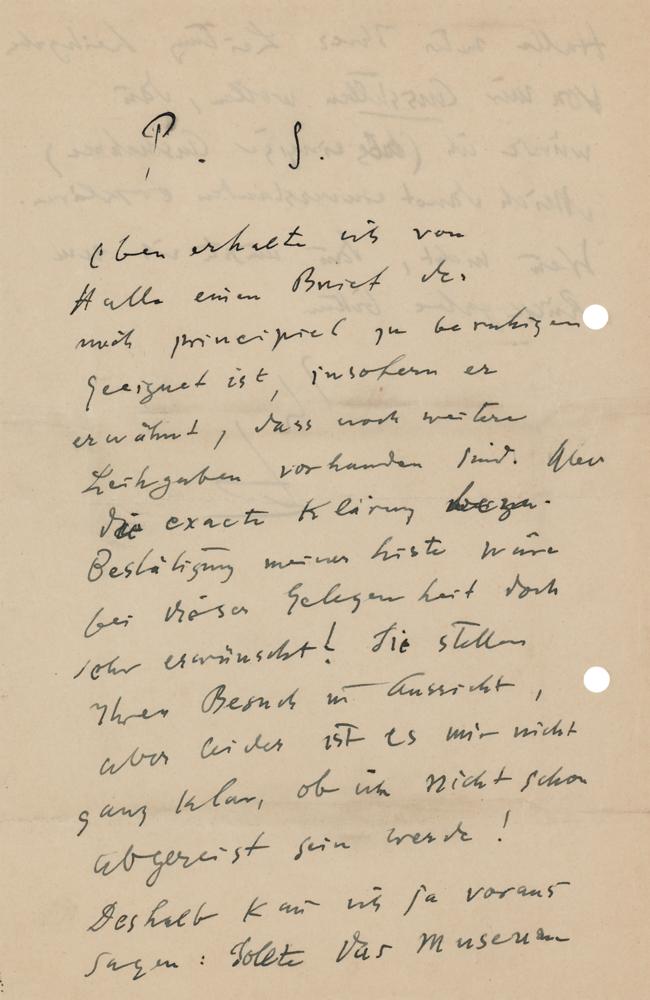 P. S.
Eben erhalte ich von
Halle einen Brief der
mich principiel zu beruhigen
geeignet ist, insofern er
erwähnt, dass noch weitere
Leihgaben vorhanden sind. Aber
die exacte Klärung bezw.
Bestätigung meiner Liste wäre
bei dieser Gelegenheit doch
sehr erwünscht! Sie stellen
Ihren Besuch in Aussicht,
aber leider ist es mir nicht
ganz klar, ob ich nicht schon
abgereist sein werde!
Deshalb kan ich ja voraus
sagen: Sollte das Museum